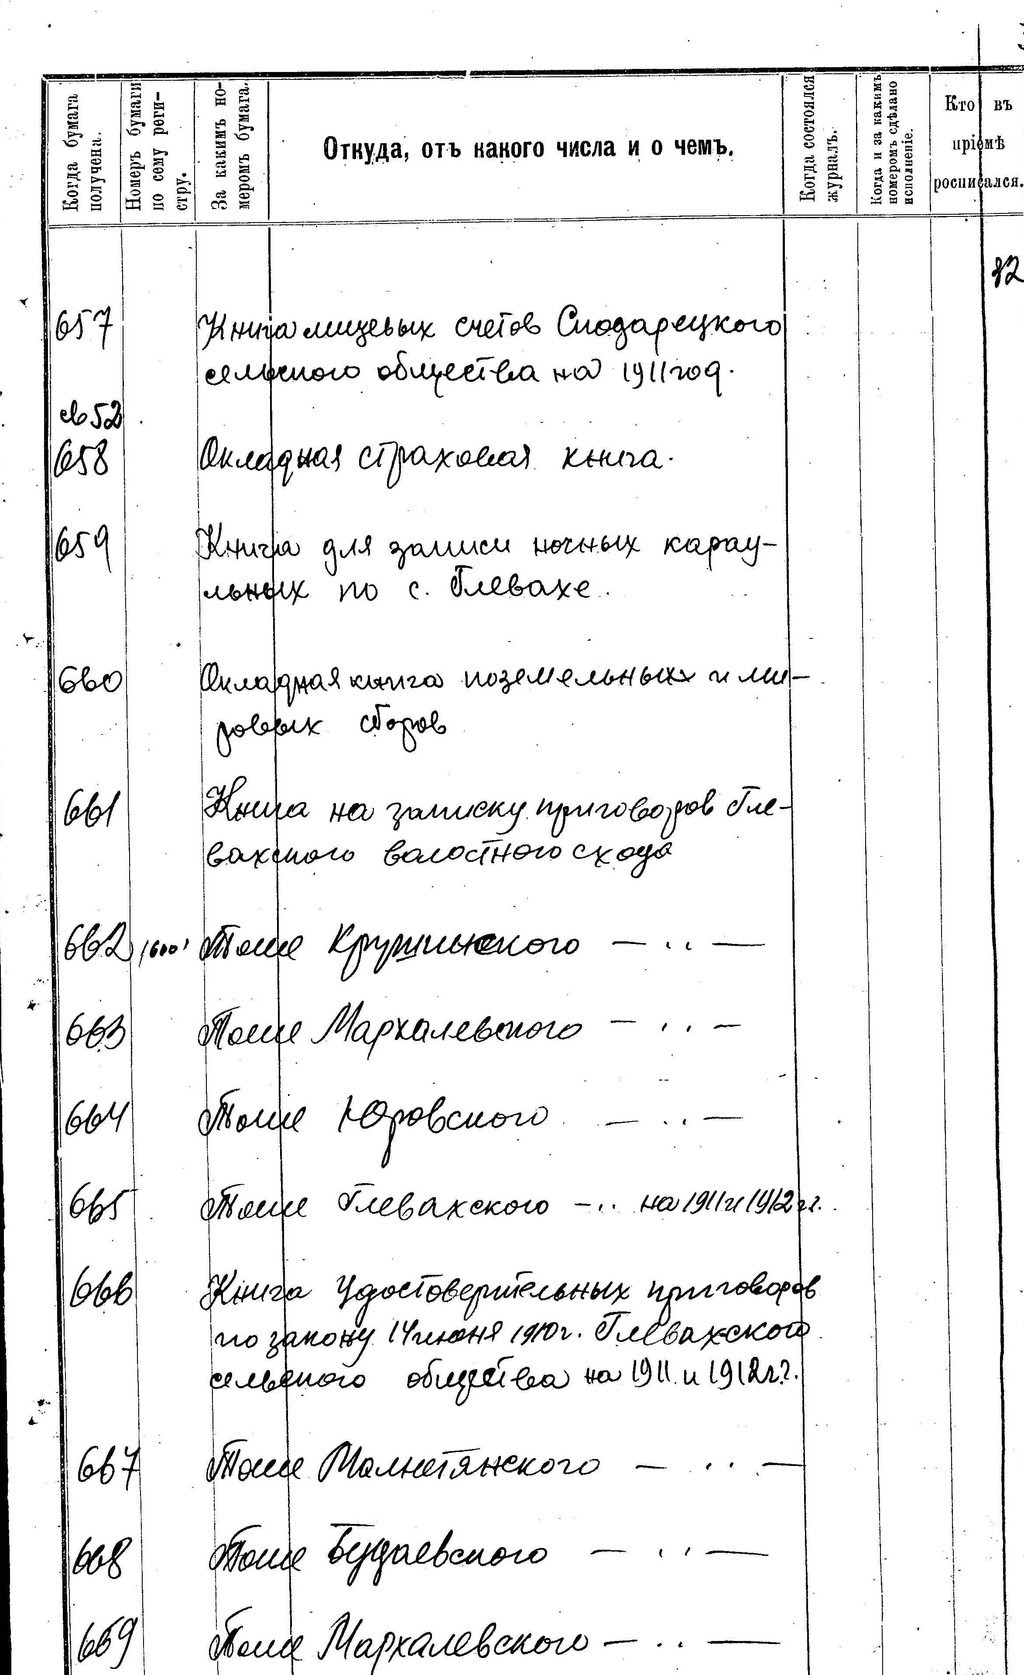 Когда бумага получена.
Номеръ бумаги по сему реги-стру.
За какимъ но-меромъ бумага.
Откуда, отъ какого числа и о чемъ.
Когда состоялся журналъ.
Когда и за какимъ номеромъ сдѣлано исполненіе.
Кто въ пріемѣ росписался.
82
657 Книга лицевых счетов Сподарецкого
сельского общества на 1911 год.
658 Окладная страховая книга.
659 Книга для записи ночных карау-
льных по с. Глевахе.
660 Окладная книга поземельных и ми-
ровых сборов
661 Книга на записку приговоров Гле-
вахского волостного схода
662 Тоже Крушинского — " —
663 Тоже Мархалевского — " —
664 Тоже Юровского — " —
665 Тоже Глевахского — " на 1911 и 1912 гг.
666 Книга удостоверительных приговоров
по закону 14 июня 1910 г. Глевахского
сельского общества на 1911 и 1912 г.г.
667 Тоже Малютянского — " —
668 Тоже Будаевского — " —
669 Тоже Мархалевского — " —